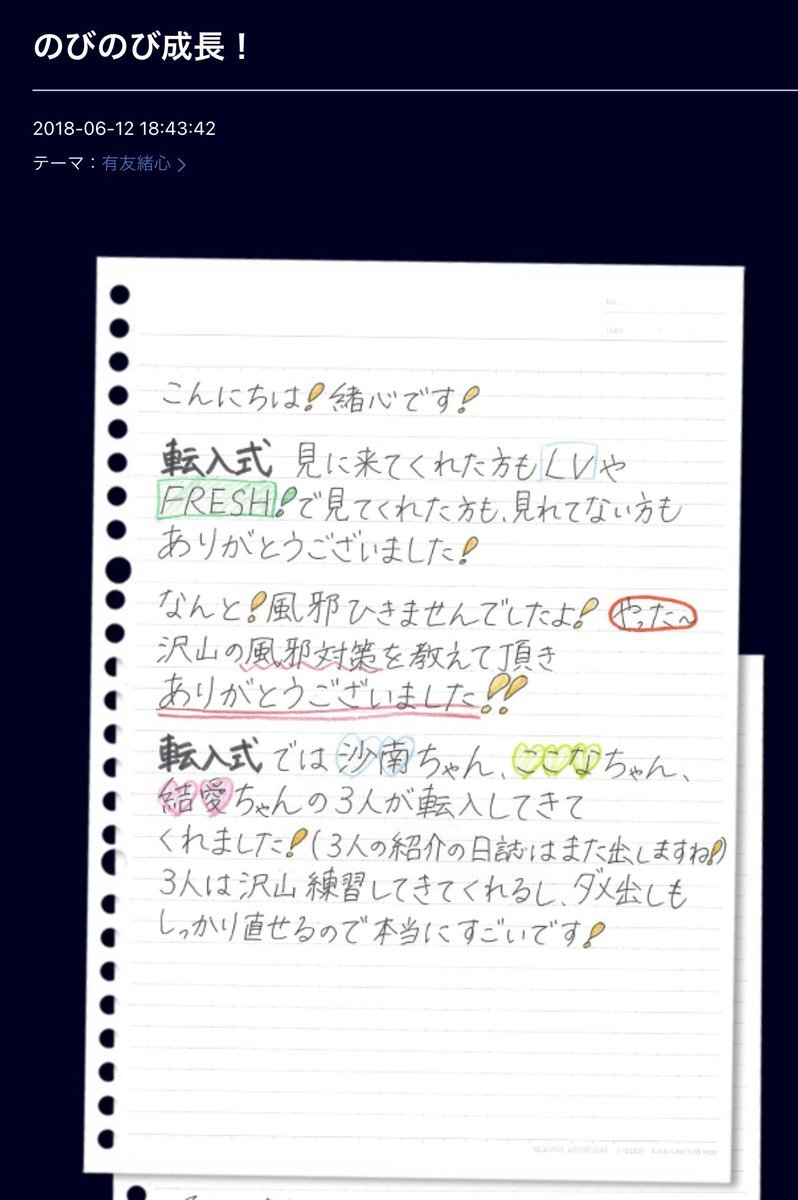 のびのび成長！
2018-06-12 18:43:42
テーマ：有友緒心
No.
Date
こんにちは!緒心です!
転入式 見に来てくれた方もLVや
FRESH!で見てくれた方も、見れてない方も
ありがとうございました!
なんと!風邪ひきませんでしたよ! やった~
沢山の風邪対策を教えて頂き
ありがとうございました!!
転入式では沙南ちゃん、ここなちゃん、
結愛ちゃんの3人が転入してきて
くれました!(3人の紹介の日誌はまた出しますね!)
3人は沢山練習してきてくれるし、ダメ出しも
しっかり直せるので本当にすごいです!